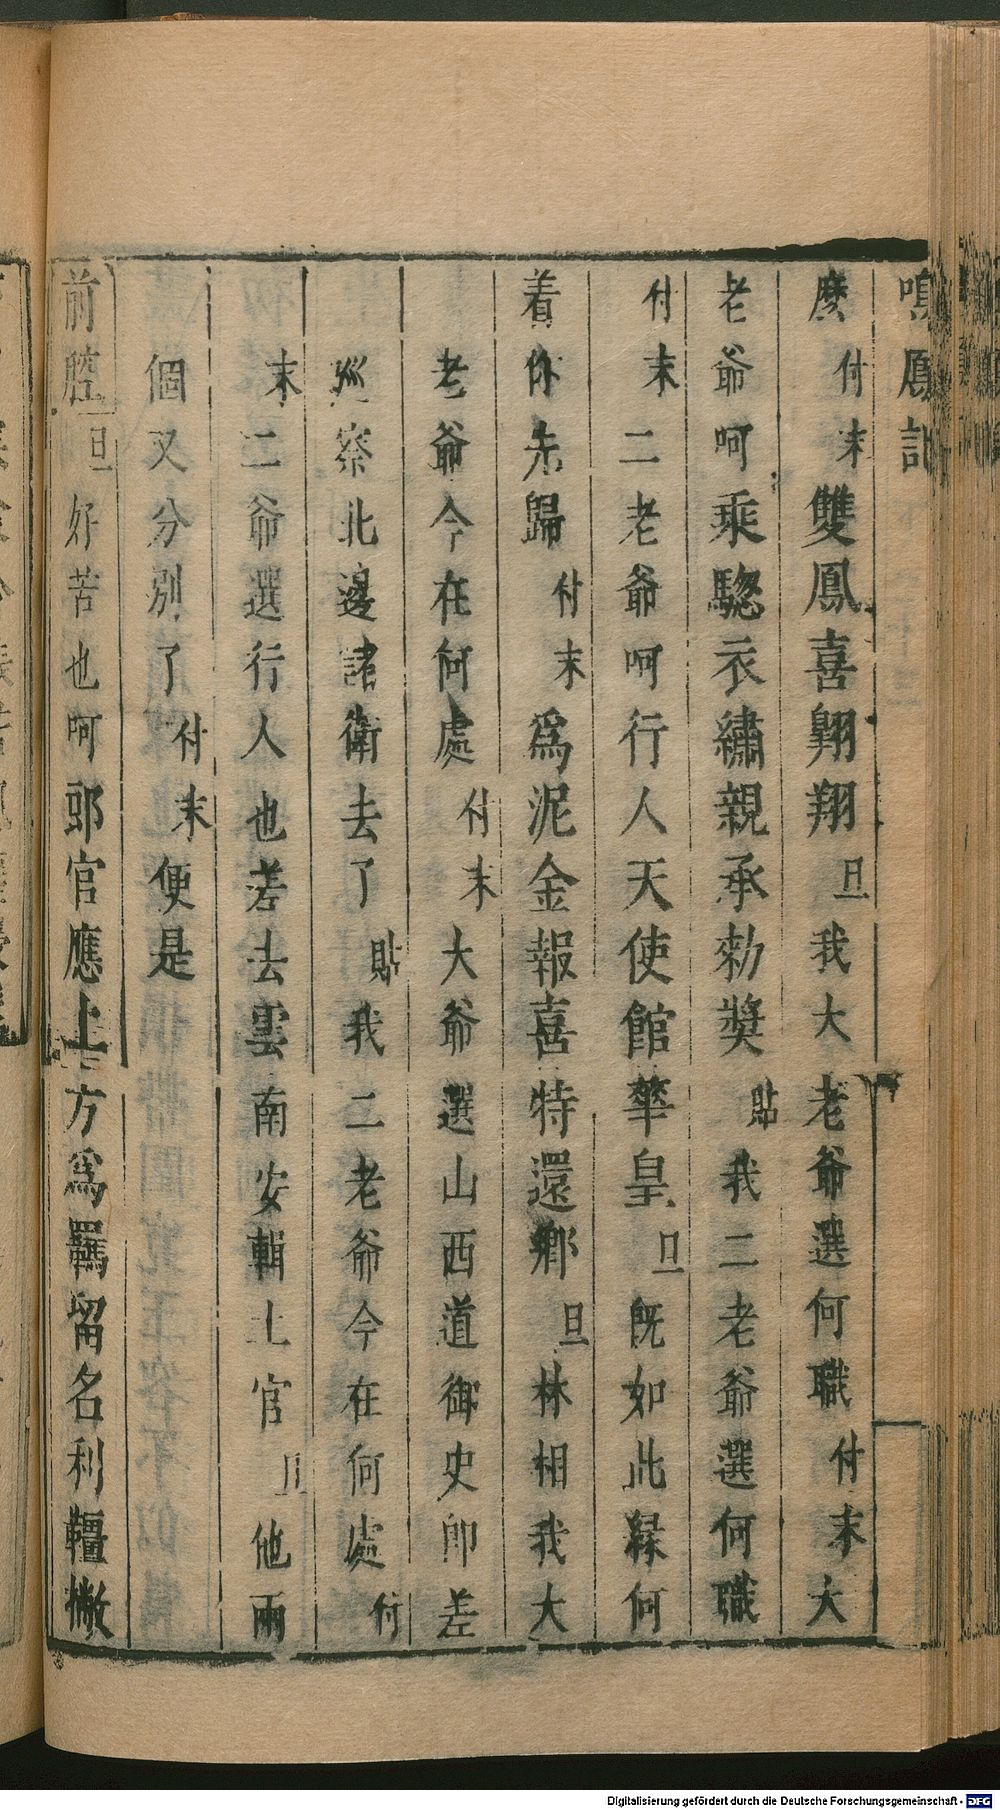 鳴鳳記
麽付末雙鳳喜翺翔旦我大老爺選何職付末大
老爺呵乘驄衣繡親承勑獎貼我二老爺選何職
付末二老爺呵行人天使館華皇旦旣如此縁何
着你先歸付末爲泥金報喜特還鄉旦林相我大
老爺今在何處付末大爺選山西道御史卽差
巡察北邊諸衛去了貼我二老爺今在何處付
末二爺選行人也差去雲南安輯土官旦他兩
個又分別了付末便是
前腔旦好苦也呵郎官應上方爲羈留名利韁撇
Digitalisierung gefördert durch die Deutsche Forschungsgemeinschaft - DFG